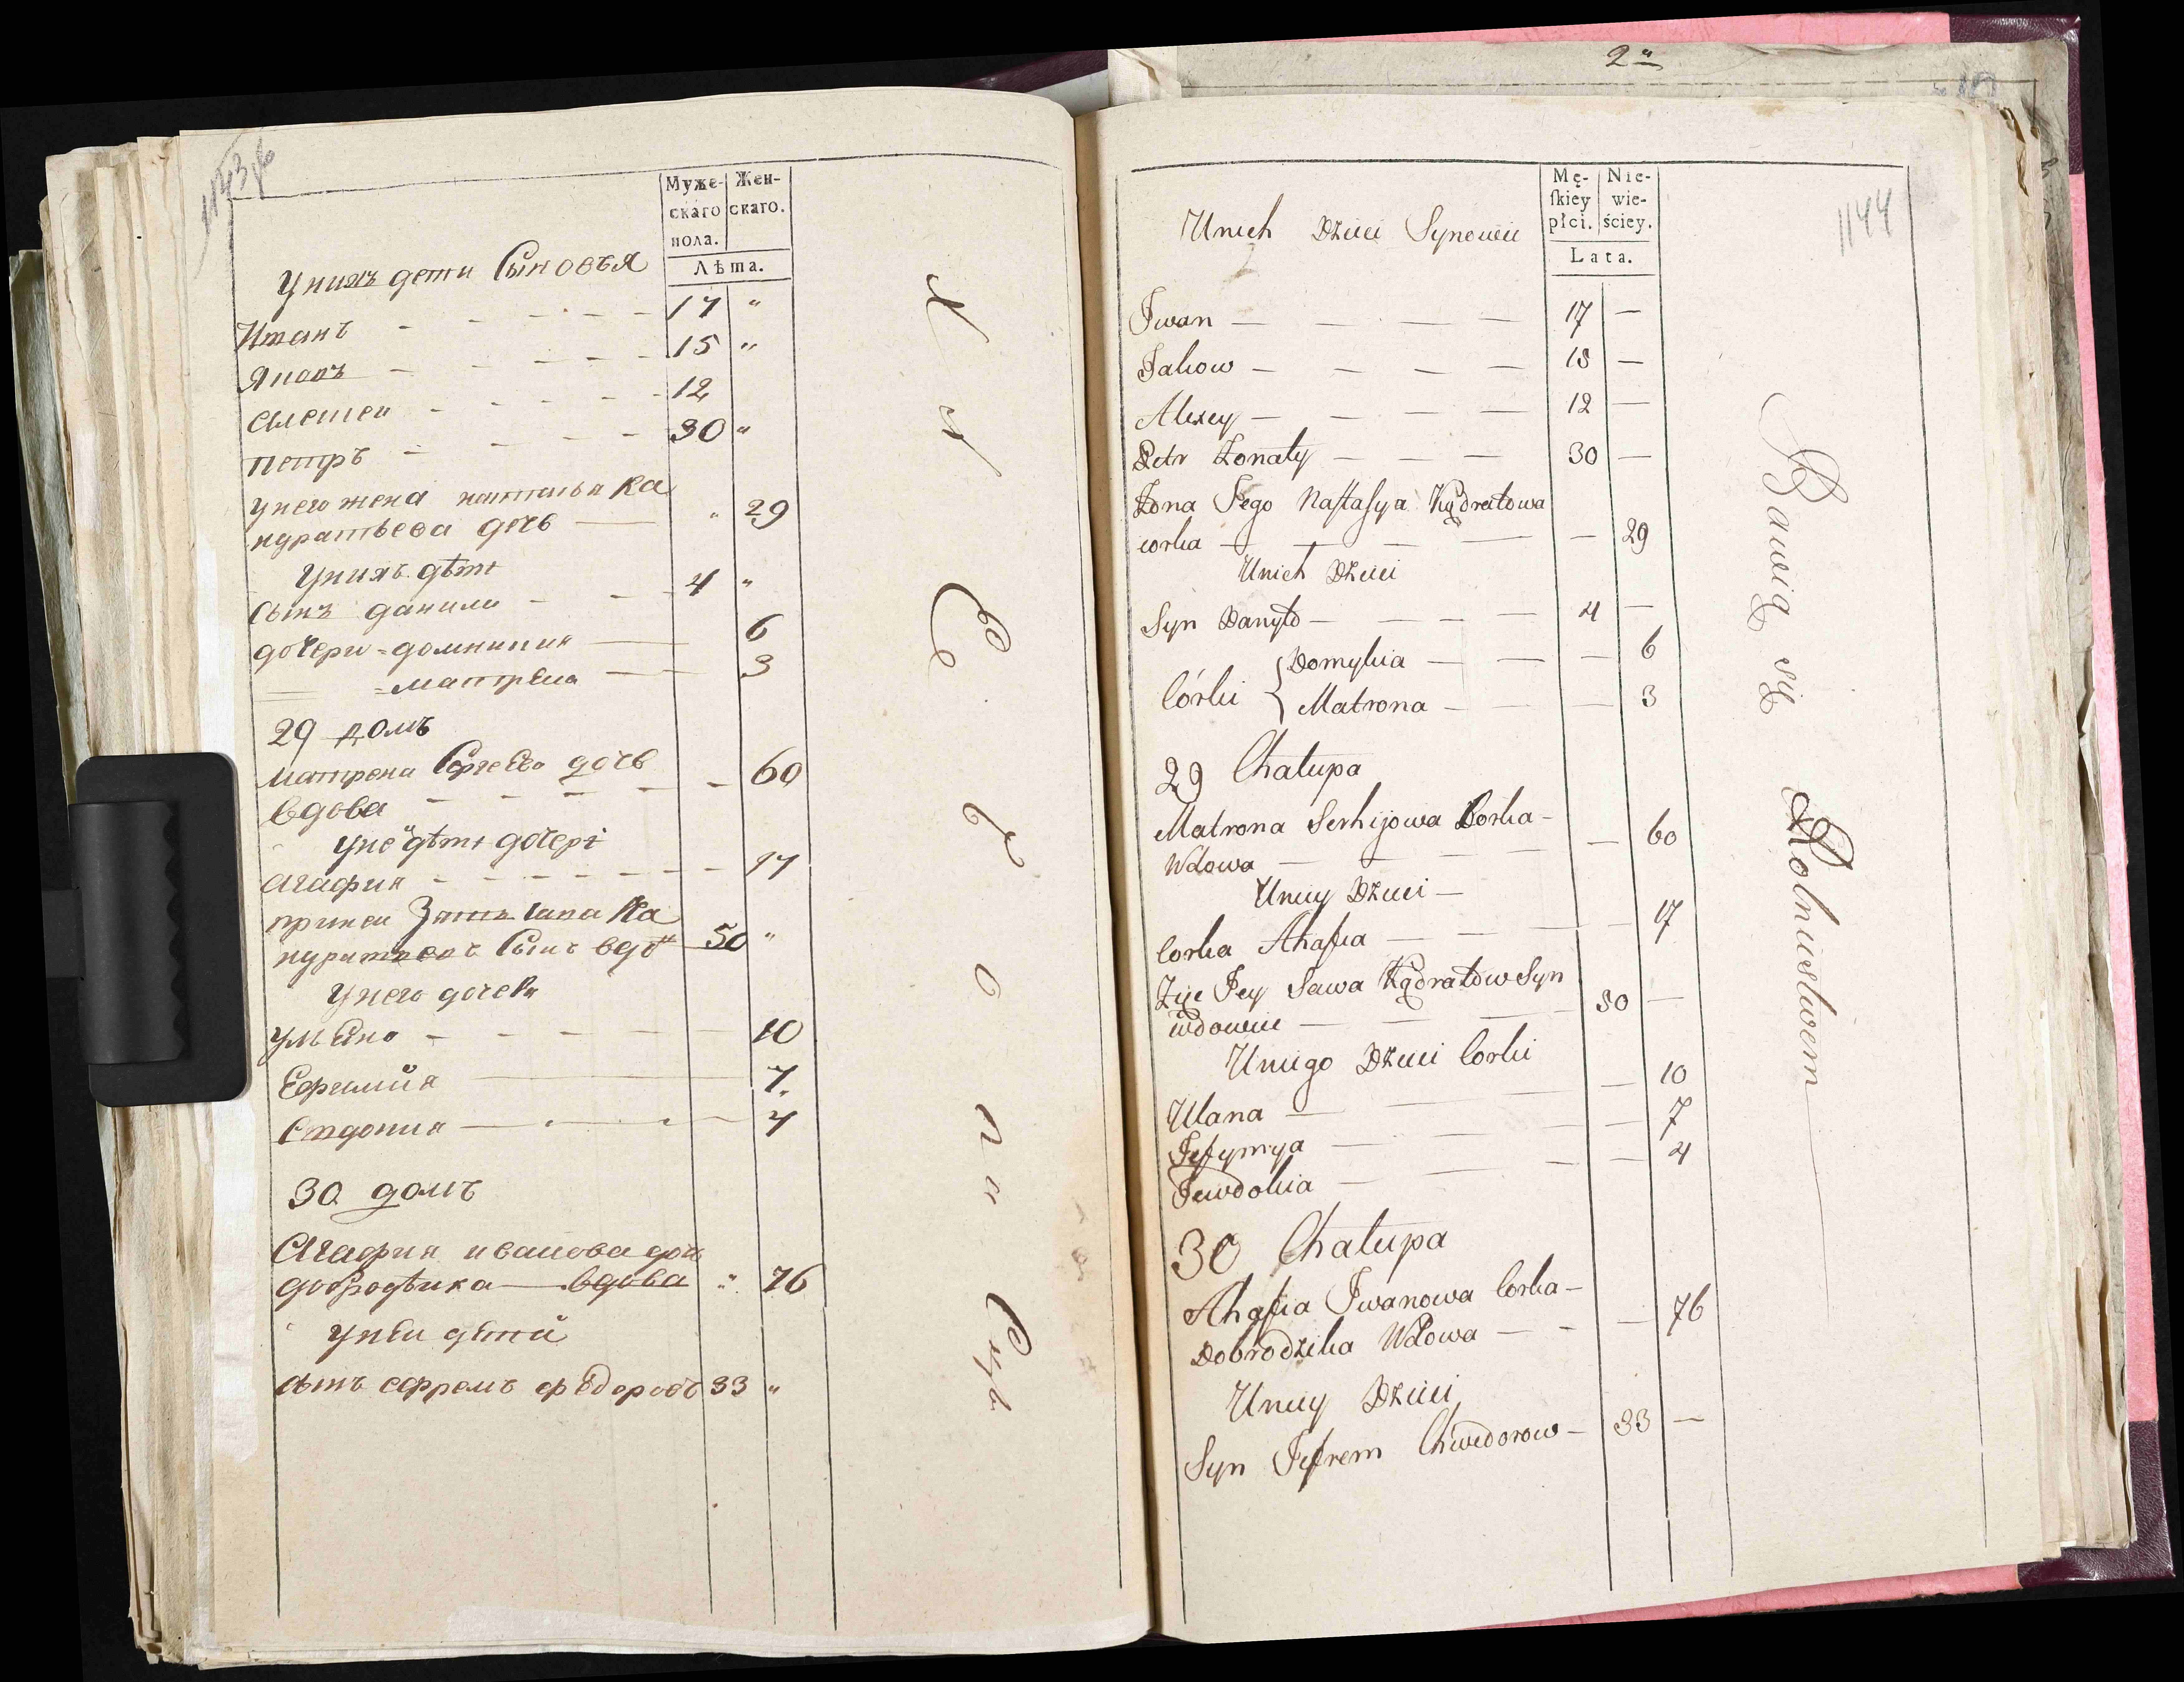 Муже-
скаго
пола.
Жен-
скаго.
Лѣта.
Унихъ дети Сыновья
Иванъ - - - - - 17 "
Яковъ - - - - - 15 "
Алексеи - - - - - 12
Петръ - - - - 30 "
Унего жена настасья Ка
ндратьева дочь — " 29
Унихъ дѣти
Сынъ данило - - - 4 "
дочери = домникия — 6
= матрена — 3
29 домъ
матрена Сергеева дочь
вдова - - - - - - 60
унеи дѣти дочери
агафия - - - - - - 17
принеи Зять Сава Ка
ндратьевъ Сынъ вдо 50 "
Унего дочери
ульяна - - - - - 10
Ефимия — 7.
Евдокия — 4
30 домъ
Агафия иванова дочь
добродѣика — вдова " 76
унеи дѣти
сынъ ефремъ федоровъ 33 "
1144
Mę-
ſkiey
płci.
Nie-
wie-
ściey.
Lata.
Unich Dzieci Synowie
Jwan — — — — 17 —
Jakow — — — — 15 —
Alexey — — — — 12 —
Petr Żonaty — — — 30 —
Żona Jego Naſtaſya Kądratowa
corka — — — — — 29
Unich Dzieci
Syn Danyło — — — — 4 —
Córki { Domykia — — — 6
Matrona — — — 3
29 Chałupa
Matrona Serhijowa Corka —
Wdowa — — — — — 60
Uniey Dzieci —
Corka Ahafia — — — — 17
Żyie Jey Sawa Kądratow Syn
wdowiec — — — 50 —
Uniego Dzieci Corki
Ulana — — — — 10
Jefymya — — — — 7
Jewdokia — — — — 4
30 Chałupa
Ahafia Jwanowa Corka —
Dobrodzika Wdowa — — — 76
Uniey Dzieci
Syn Jefrem Chwedorow — 33 —
Bawią się Rolnictwem